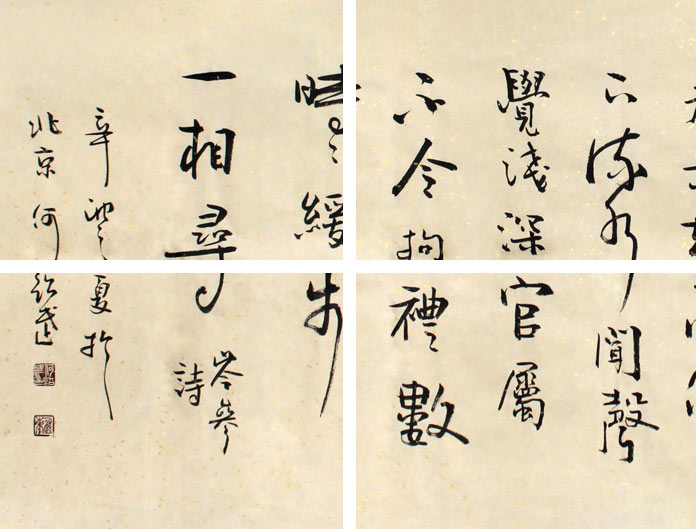 下流水聞聲
覺淺深官屬
不令拘禮數
時々緩步
一相尋
岑參
詩
辛卯之夏於
北京何